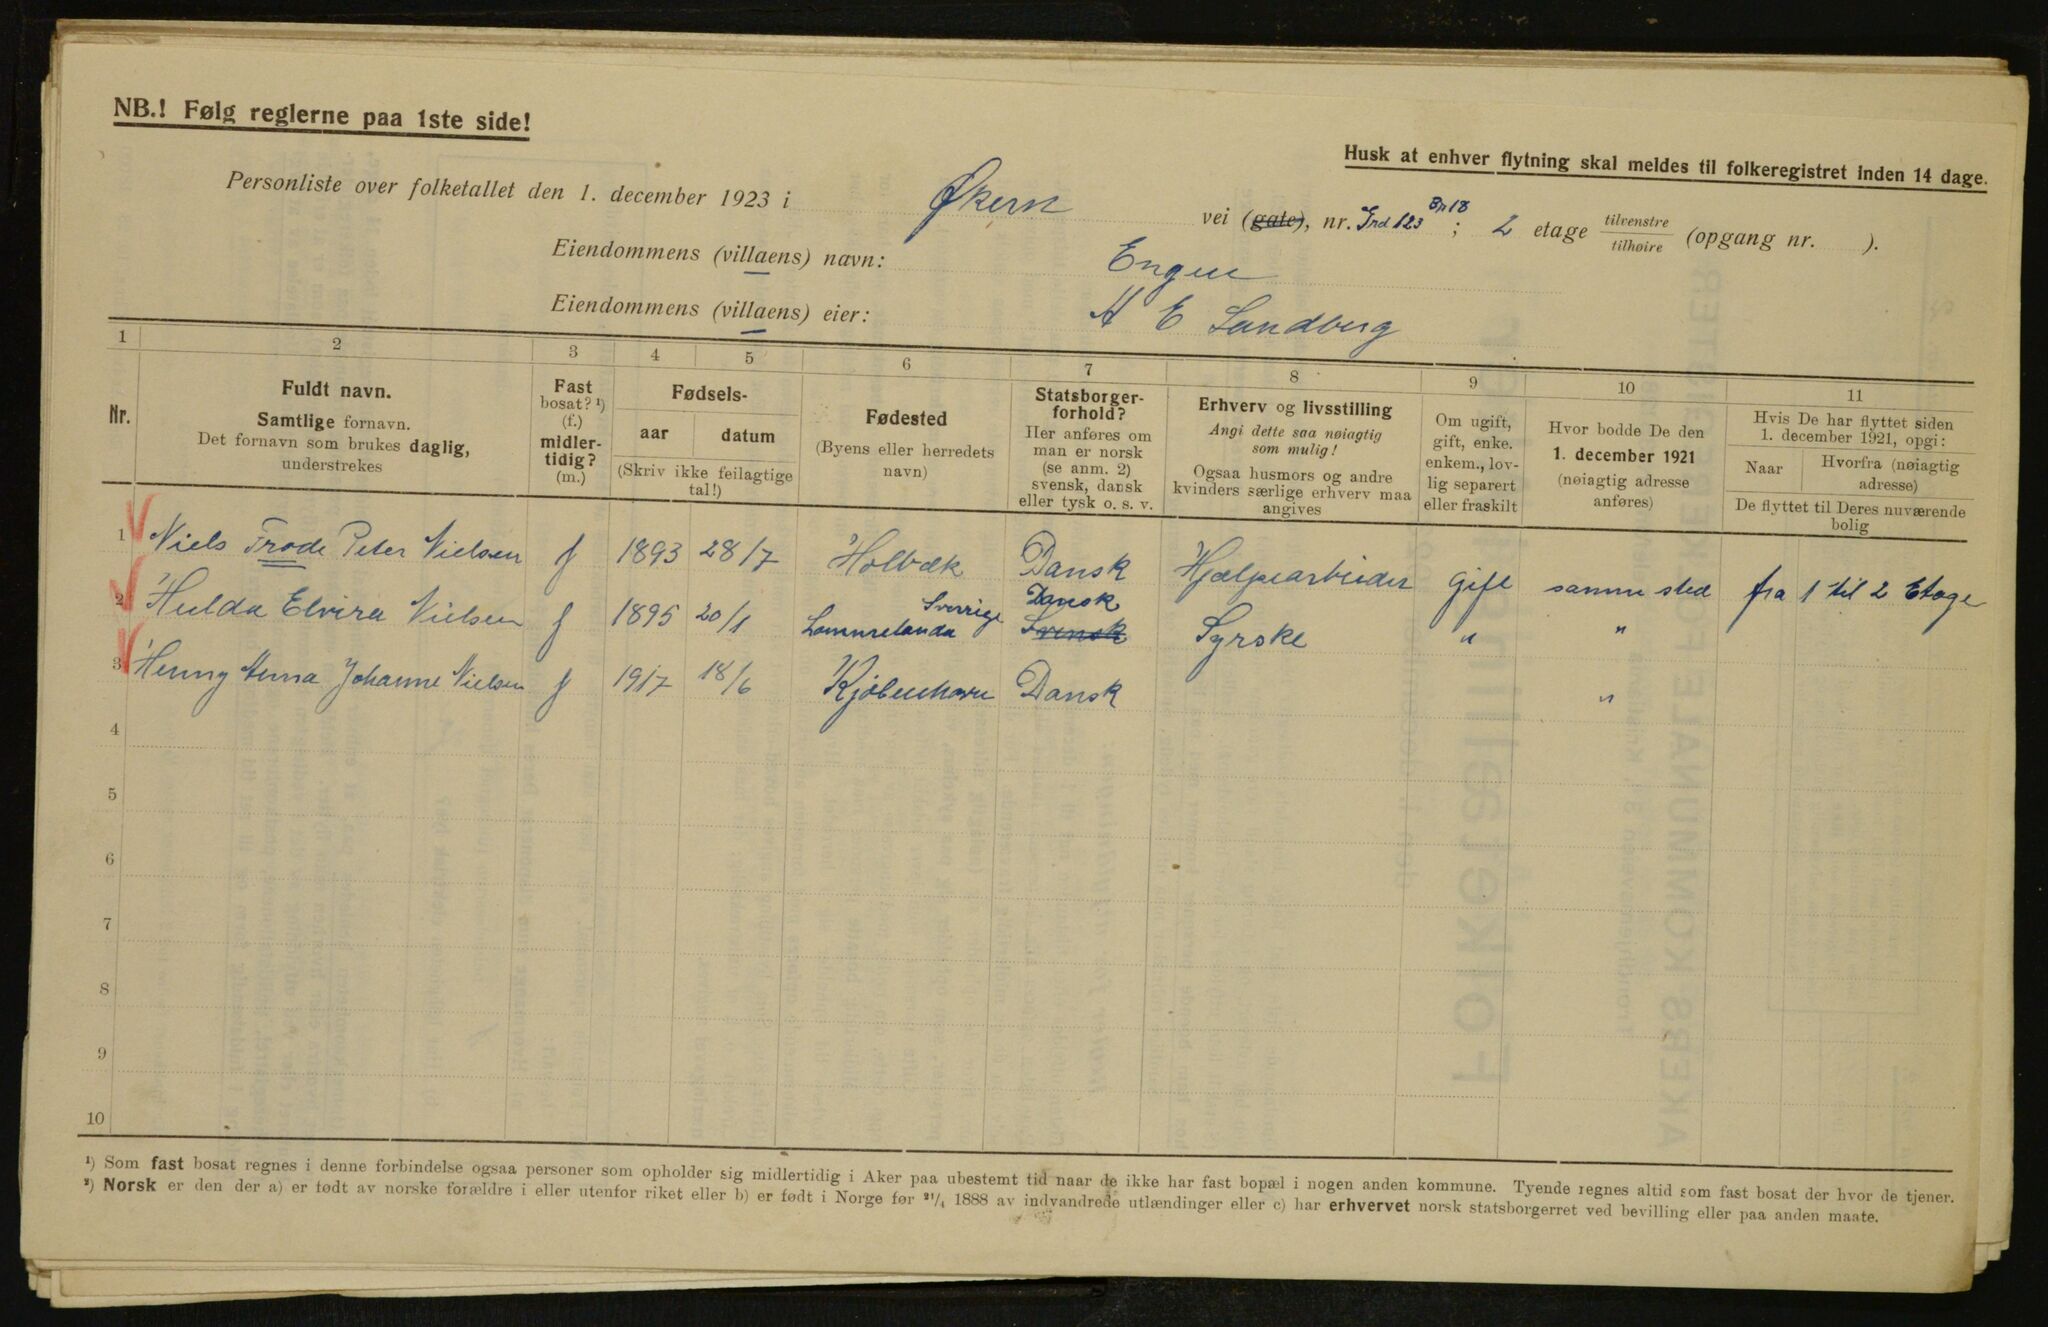 NB.! Følg reglerne paa 1ste side!
Husk at enhver flytning skal meldes til folkeregistret inden 14 dage.
Personliste over folketallet den 1. december 1923 i Økern vei (gate), nr. Grd 123 Br 18; 2 etage tilvenstre tilhøire (opgang nr. ).
Eiendommens (villaens) navn: Engen
Eiendommens (villaens) eier: A E Sandberg
1 2 3 4 5 6 7 8 9 10 11
Nr.
Fuldt navn.
Samtlige fornavn.
Det fornavn som brukes daglig,
understrekes
Fast
bosat? ¹)
(f.)
midler-
tidig?
(m.)
Fødsels-
aar datum
(Skriv ikke feilagtige
tal!)
Fødested
(Byens eller herredets
navn)
Statsborger-
forhold?
Her anføres om
man er norsk
(se anm. 2)
svensk, dansk
eller tysk o. s. v.
Erhverv og livsstilling
Angi dette saa nøiagtig
som mulig!
Ogsaa husmors og andre
kvinders særlige erhverv maa
angives
Om ugift,
gift, enke.
enkem., lov-
lig separert
eller fraskilt
Hvor bodde De den
1. december 1921
(nøiagtig adresse
anføres)
Hvis De har flyttet siden
1. december 1921, opgi:
Naar Hvorfra (nøiagtig
adresse)
De flyttet til Deres nuværende
bolig
1 Niels Frode Peter Nielsen f 1893 28/7 Holbæk Dansk Hjælpearbeider Gift samme sted fra 1 til 2 Etage
2 Hulda Elvira Nielsen f 1895 20/1 Sverrige Lommelanda Dansk Svensk Syrske " "
3 Henny Anna Johanne Nielsen f 1917 18/6 Kjøbenhavn Dansk "
4
5
6
7
8
9
10
¹) Som fast bosat regnes i denne forbindelse ogsaa personer som opholder sig midlertidig i Aker paa ubestemt tid naar de ikke har fast bopæl i nogen anden kommune. Tyende regnes altid som fast bosat der hvor de tjener.
²) Norsk er den der a) er født av norske forældre i eller utenfor riket eller b) er født i Norge før ²¹/₄ 1888 av indvandrede utlændinger eller c) har erhvervet norsk statsborgerret ved bevilling eller paa anden maate.